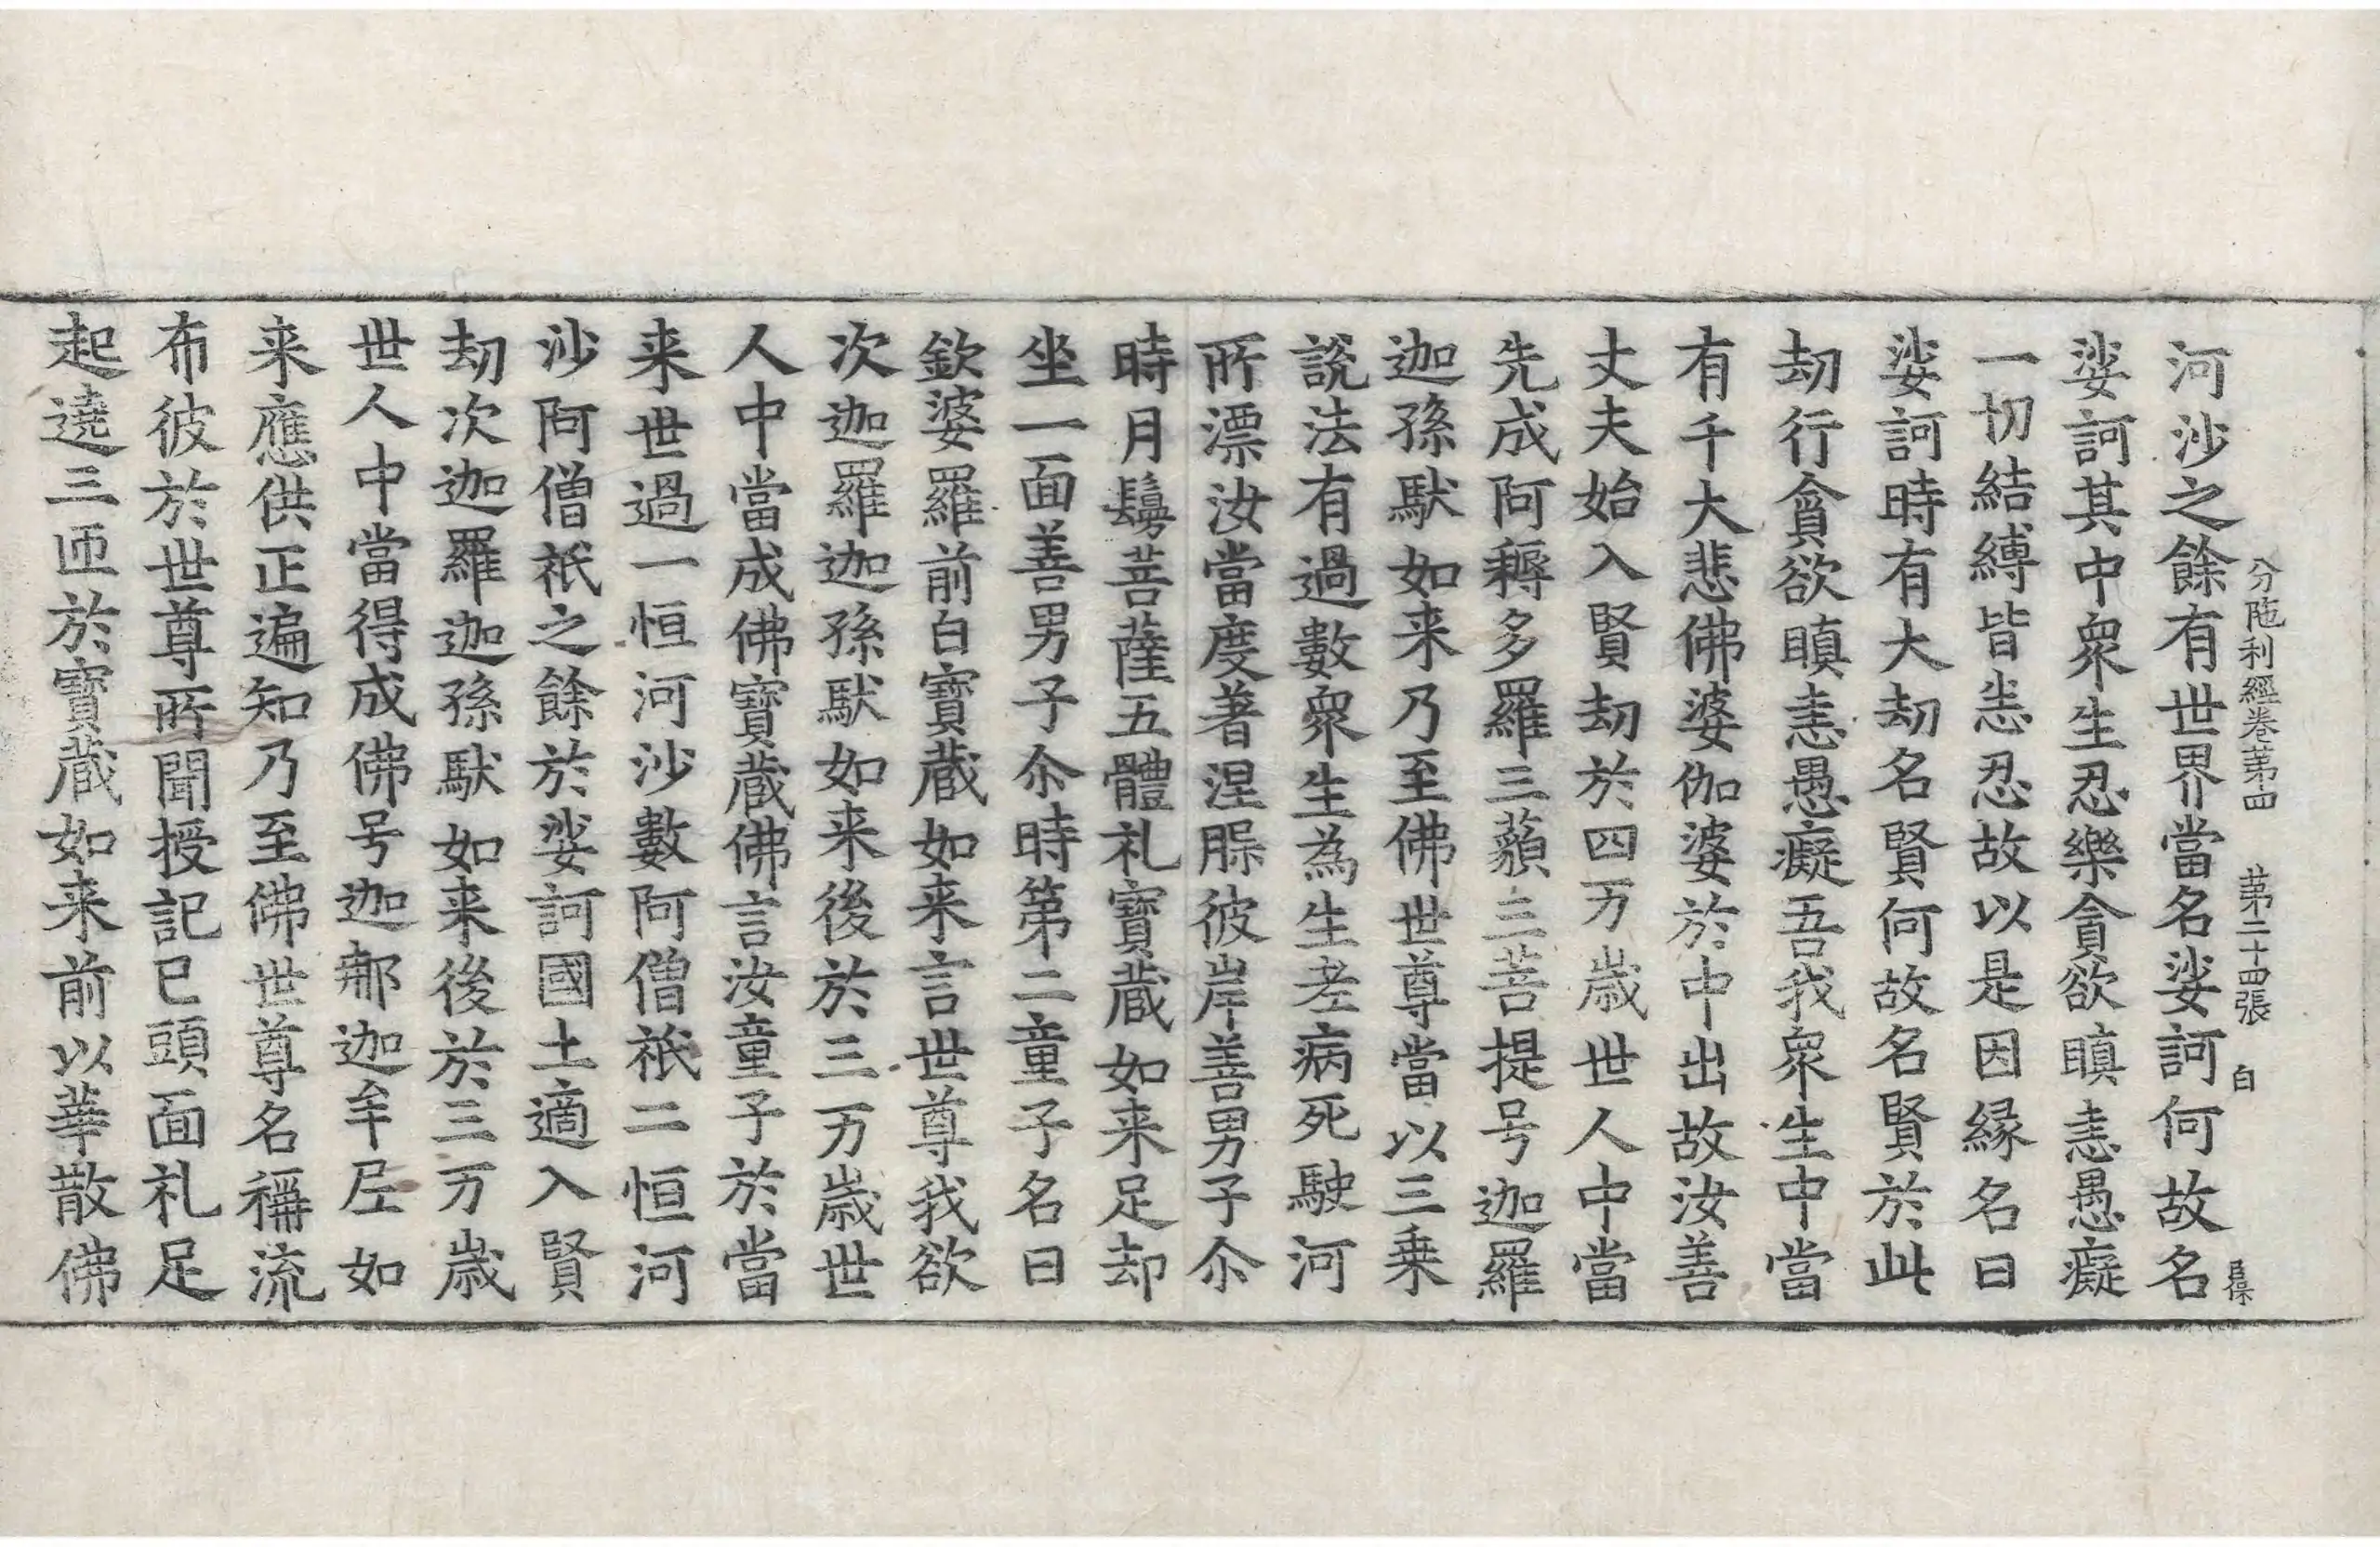 分陁利經卷苐四 苐二十四張 白
河沙之餘有世界當名娑訶何故名
娑訶其中衆生忍樂貪欲瞋恚愚癡
一切結縛皆悉忍故以是因縁名曰
娑訶時有大劫名賢何故名賢於此
劫行貪欲瞋恚愚癡吾我衆生中當
有千大悲佛婆伽婆於中出故汝善
丈夫始入賢劫於四万歳世人中當
先成阿耨多羅三藐三菩提号迦羅
迦孫䭾如来乃至佛世尊當以三乗
說法有過數衆生為生老病死駛河
所漂汝當度著涅脲彼岸善男子尒
時月鬘菩薩五體礼寶蔵如来足却
坐一面善男子尒時第二童子名曰
欽婆羅前白寶蔵如来言世尊我欲
次迦羅迦孫䭾如来後於三万歳世
人中當成佛寶蔵佛言汝童子於當
来世過一恒河沙數阿僧祇二恒河
沙阿僧祇之餘於娑訶國土適入賢
劫次迦羅迦孫䭾如来後於三万歳
世人中當得成佛号迦那迦牟尼如
来應供正遍知乃至佛世尊名稱流
布彼於世尊所聞授記已頭面礼足
起遶三匝於寶蔵如来前以華散佛